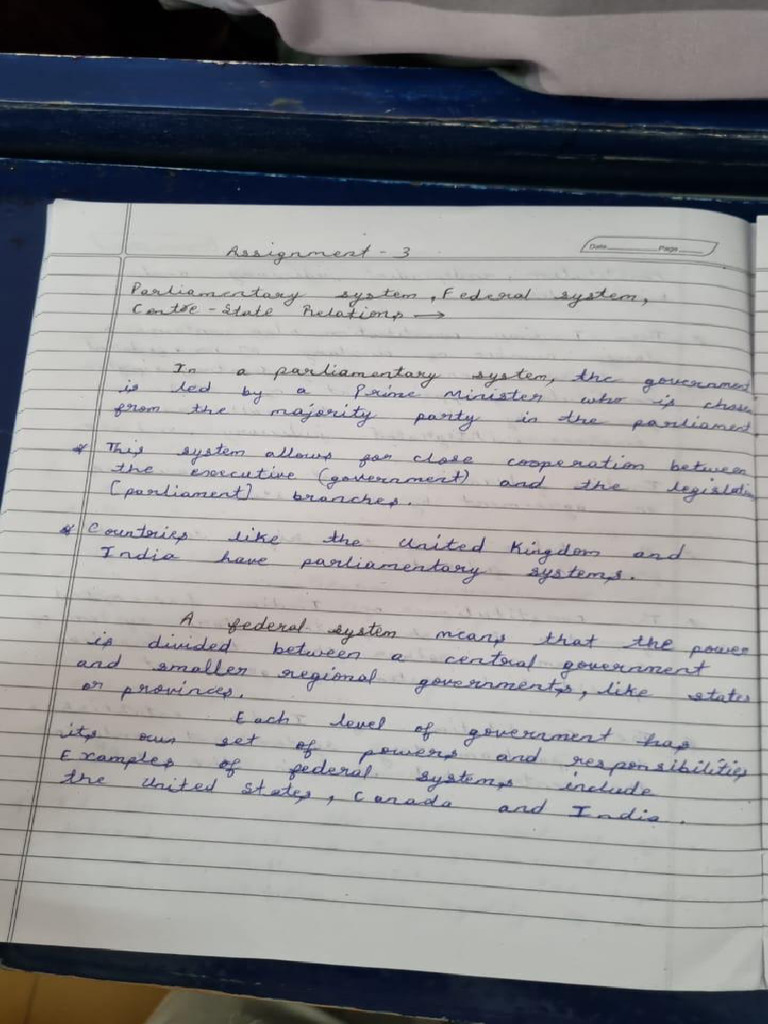 Assignment - 3
Date Page
Parliamentary system, Federal system,
Centre-State Relations →
In a parliamentary system, the government
is led by a Prime Minister who is chosen
from the majority party in the parliament.
* This system allows for close cooperation between
the executive (government) and the legislative
(parliament) branches.
* Countries like the United Kingdom and
India have parliamentary systems.
A federal system means that the power
is divided between a central government
and smaller regional governments, like states
or provinces.
Each level of government has
its own set of powers and responsibilities
Examples of federal systems include
the United States, Canada and India.